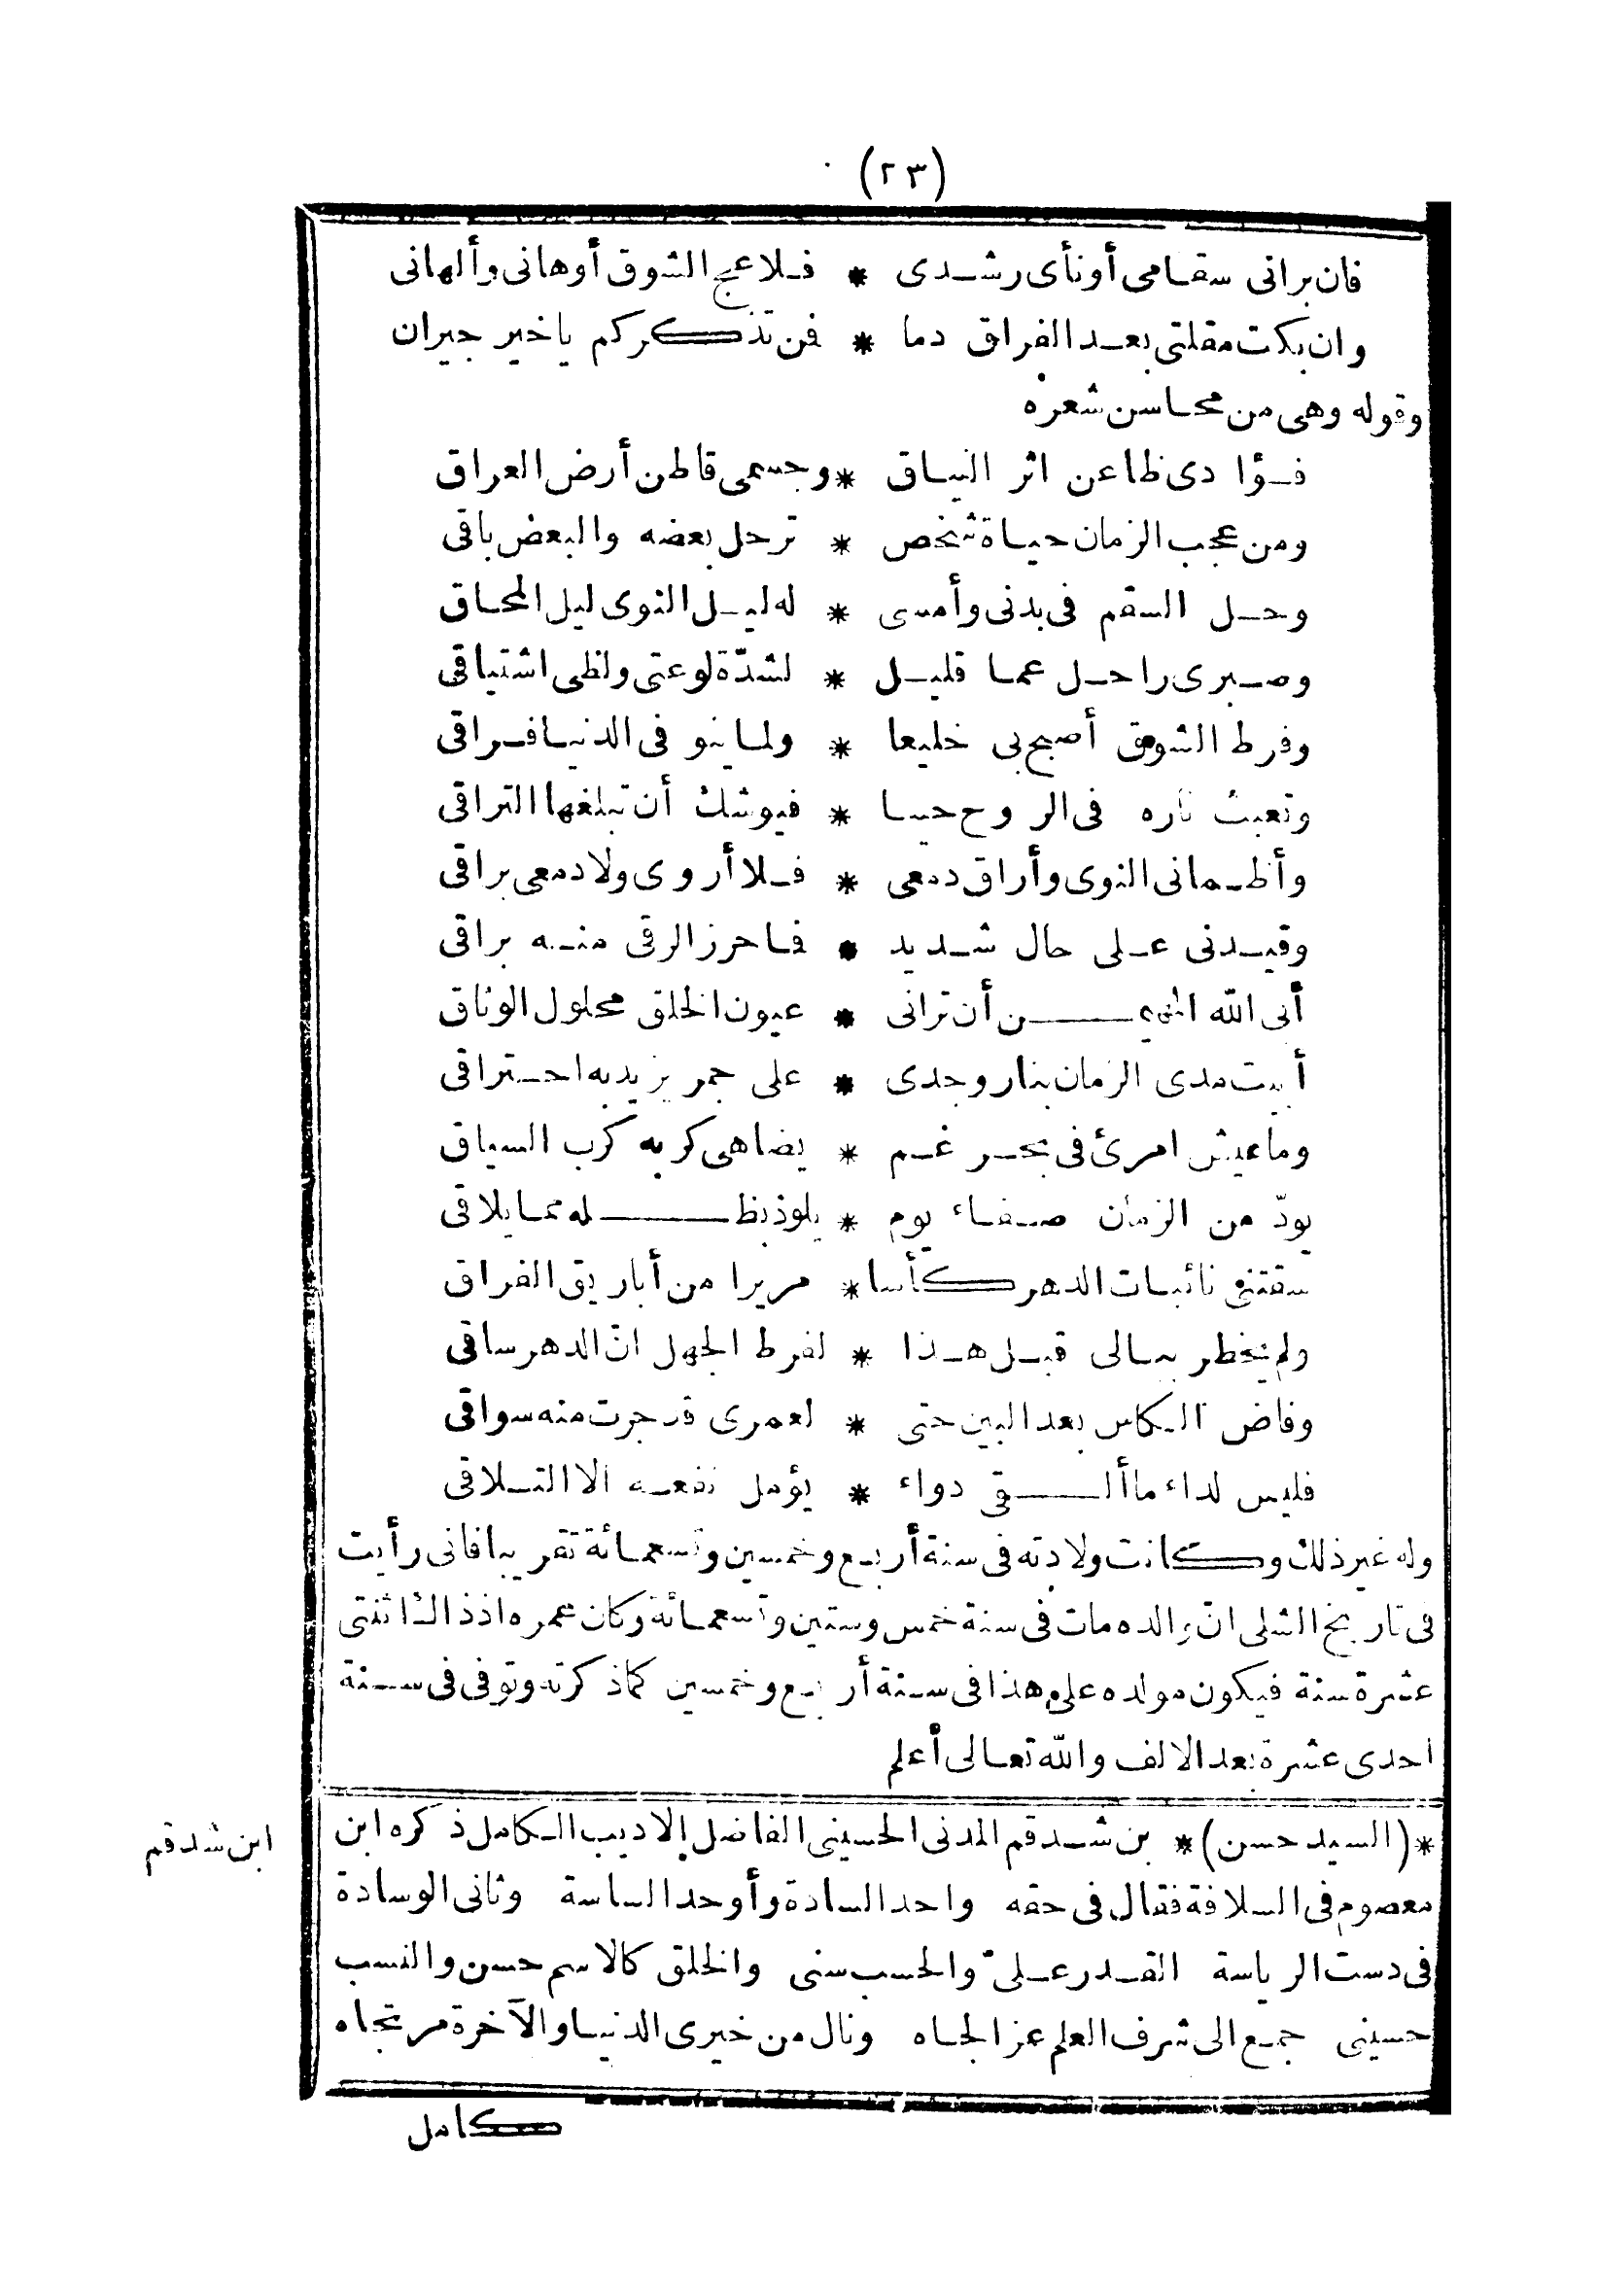 (٢٣)
فان برانى سقامى أونأى رشدى * فلاعج الشوق أوهانى وألهانى
وان بكت مقلتى بعد الفراق دما * فن تذكركم ياخير جيران
وقوله وهى من محاسن شعره
فؤادى ظاعن اثر النياق * وجسمى قاطن أرض العراق
ومن عجب الزمان حياة شخص * ترحل بعضه والبعض باقى
وحل السقم فى بدنى وأمسى * له ليل النوى ليل المحاق
وصبرى راحل عما قليل * لشدّة لوعتى ولظى اشتياقى
وفرط الشوق أصبح بى خليعا * ولما ينو فى الدنيا فراقى
وتعبث ناره فى الروح حينا * فيوشك أن تبلغها التراقى
وأظمانى النوى وأراق دمعى * فلا أروى ولا دمعى براقى
وقيدنى على حال شديد * فاحرز الرقى منه براقى
أبى الله المهيمن أن ترانى * عيون الخلق محلول الوثاق
أبيت مدى الزمان بنار وجدى * على جمر يزيد به احتراقى
وما عيش امرئ فى بحر غم * يضاهى كربه كرب السياق
يودّ من الزمان صفاء يوم * يلوذ بظله مما يلاقى
سقتنى نائبات الدهر كأسا * مريرا من أباريق الفراق
ولم يخطر ببالى قبل هذا * لفرط الجهل انّ الدهر ساقى
وفاض الكاس بعد البين حتى * لعمرى قد جرت منه سواقى
فليس لداء ما ألقى دواء * يؤمل نفعه الا التلاقى
وله غير ذلك وكانت ولادته فى سنة أربع وخمسين وتسعمائة تقريبا فانى رأيت
فى تاريخ الشلى انّ والده مات فى سنة خمس وستين وتسعمائة وكان عمره اذ ذاك اثنتى
عشرة سنة فيكون مولده على هذا فى سنة أربع وخمسين كماذكرته وتوفى فى سنة
احدى عشرة بعد الالف والله تعالى أعلم
*(السيد حسن)* بن شدقم المدنى الحسينى الفاضل الاديب الكامل ذكره ابن
ابن شدقم
معصوم فى السلافة فقال فى حقه واحد السادة وأوحد الساسة وثانى الوسادة
فى دست الرياسة القدر علىّ والحسب سنى والخلق كالاسم حسن والنسب
حسينى جمع الى شرف العلم عز الجاه ونال من خيرى الدنيا والآخرة مرتجاه
كامل